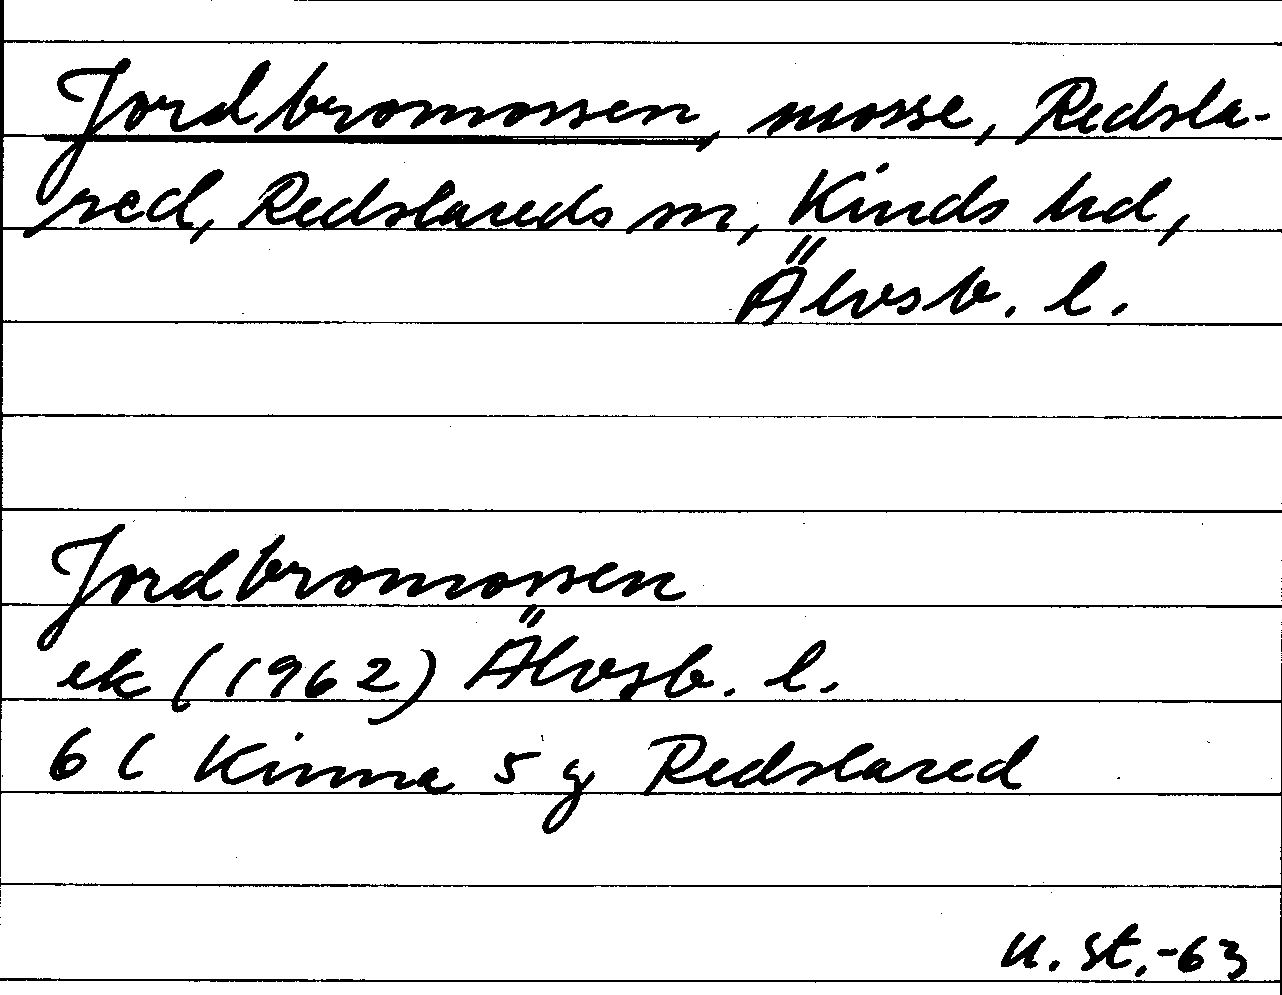 Jordbromossen, mosse, Redsla-
red, Redslareds sn, Kinds hd,
Älvsb. l.
Jordbromossen
ek (1962) Älvsb. l.
6 C Kinna 5 g Redslared
U. St.-63